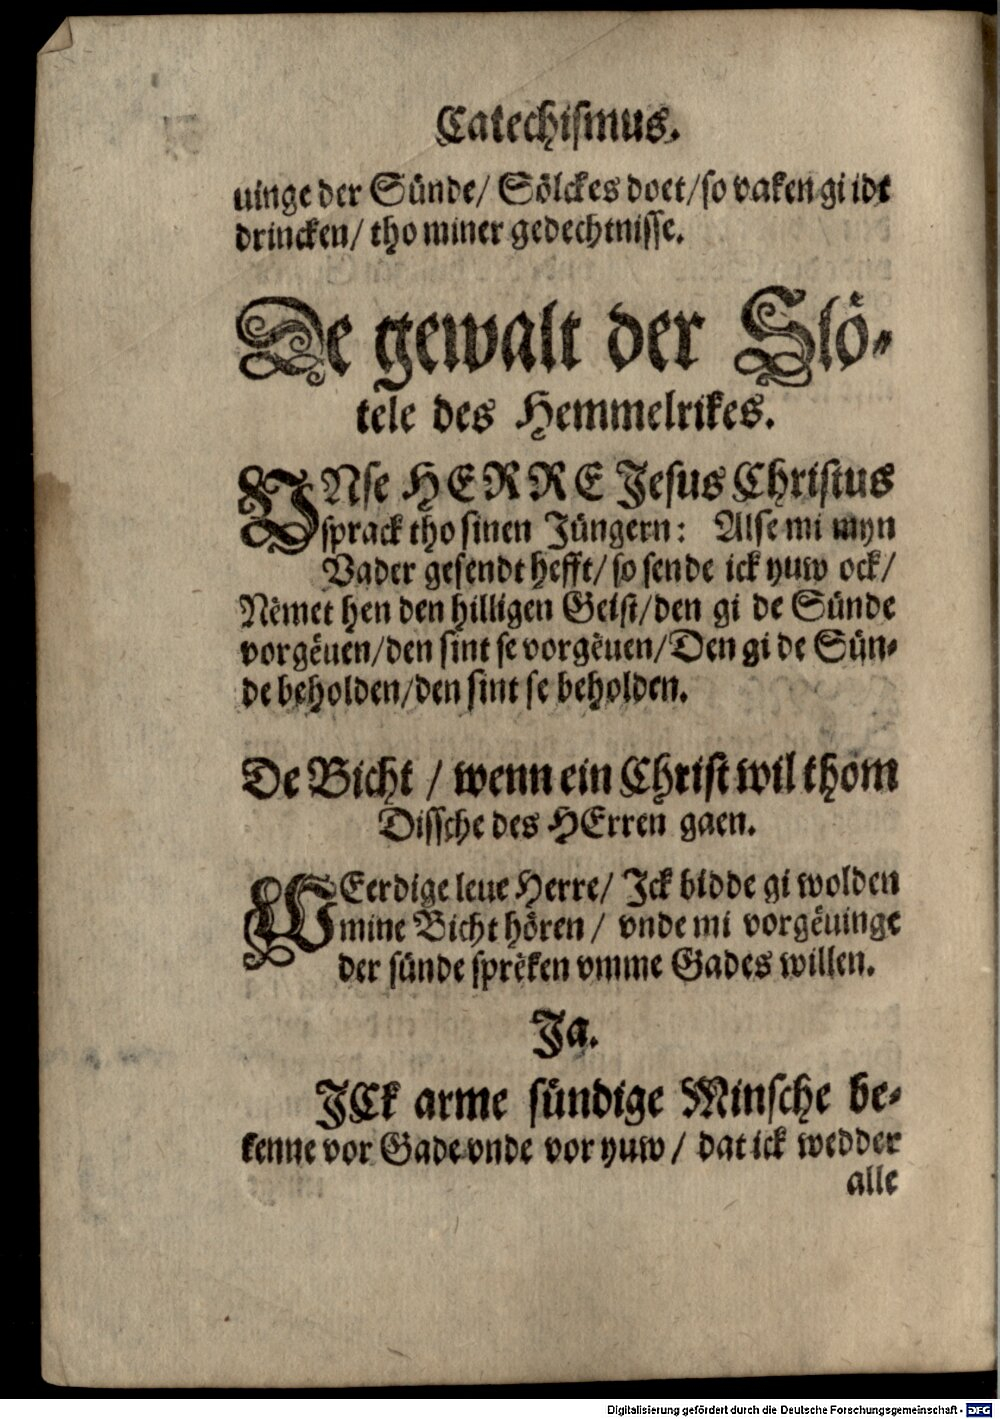 Catechismus.
uinge der Sünde/ Sölckes doet/so vaken gi idt
drincken/ tho miner gedechtnisse.
De gewalt der Slö-
tele des Hemmelrikes.
VNse HERRE Jesus Christus
sprack tho sinen Jüngern: Alse mi myn
Vader gesendt hefft/ so sende ick yuw ock/
Nëmet hen den hilligen Geist/den gi de Sünde
vorgëuen/den sint se vorgëuen/Den gi de Sün-
de beholden/den sint se beholden.
De Bicht / wenn ein Christ wil thom
Dissche des HErren gaen.
WEerdige leue Herre/ Ick bidde gi wolden
mine Bicht hören / vnde mi vorgëuinge
der sünde sprëken vmme Gades willen.
Ja.
ICk arme sündige Minsche be-
kenne vor Gade vnde vor yuw / dat ick wedder
alle
Digitalisierung gefördert durch die Deutsche Forschungsgemeinschaft - DFG